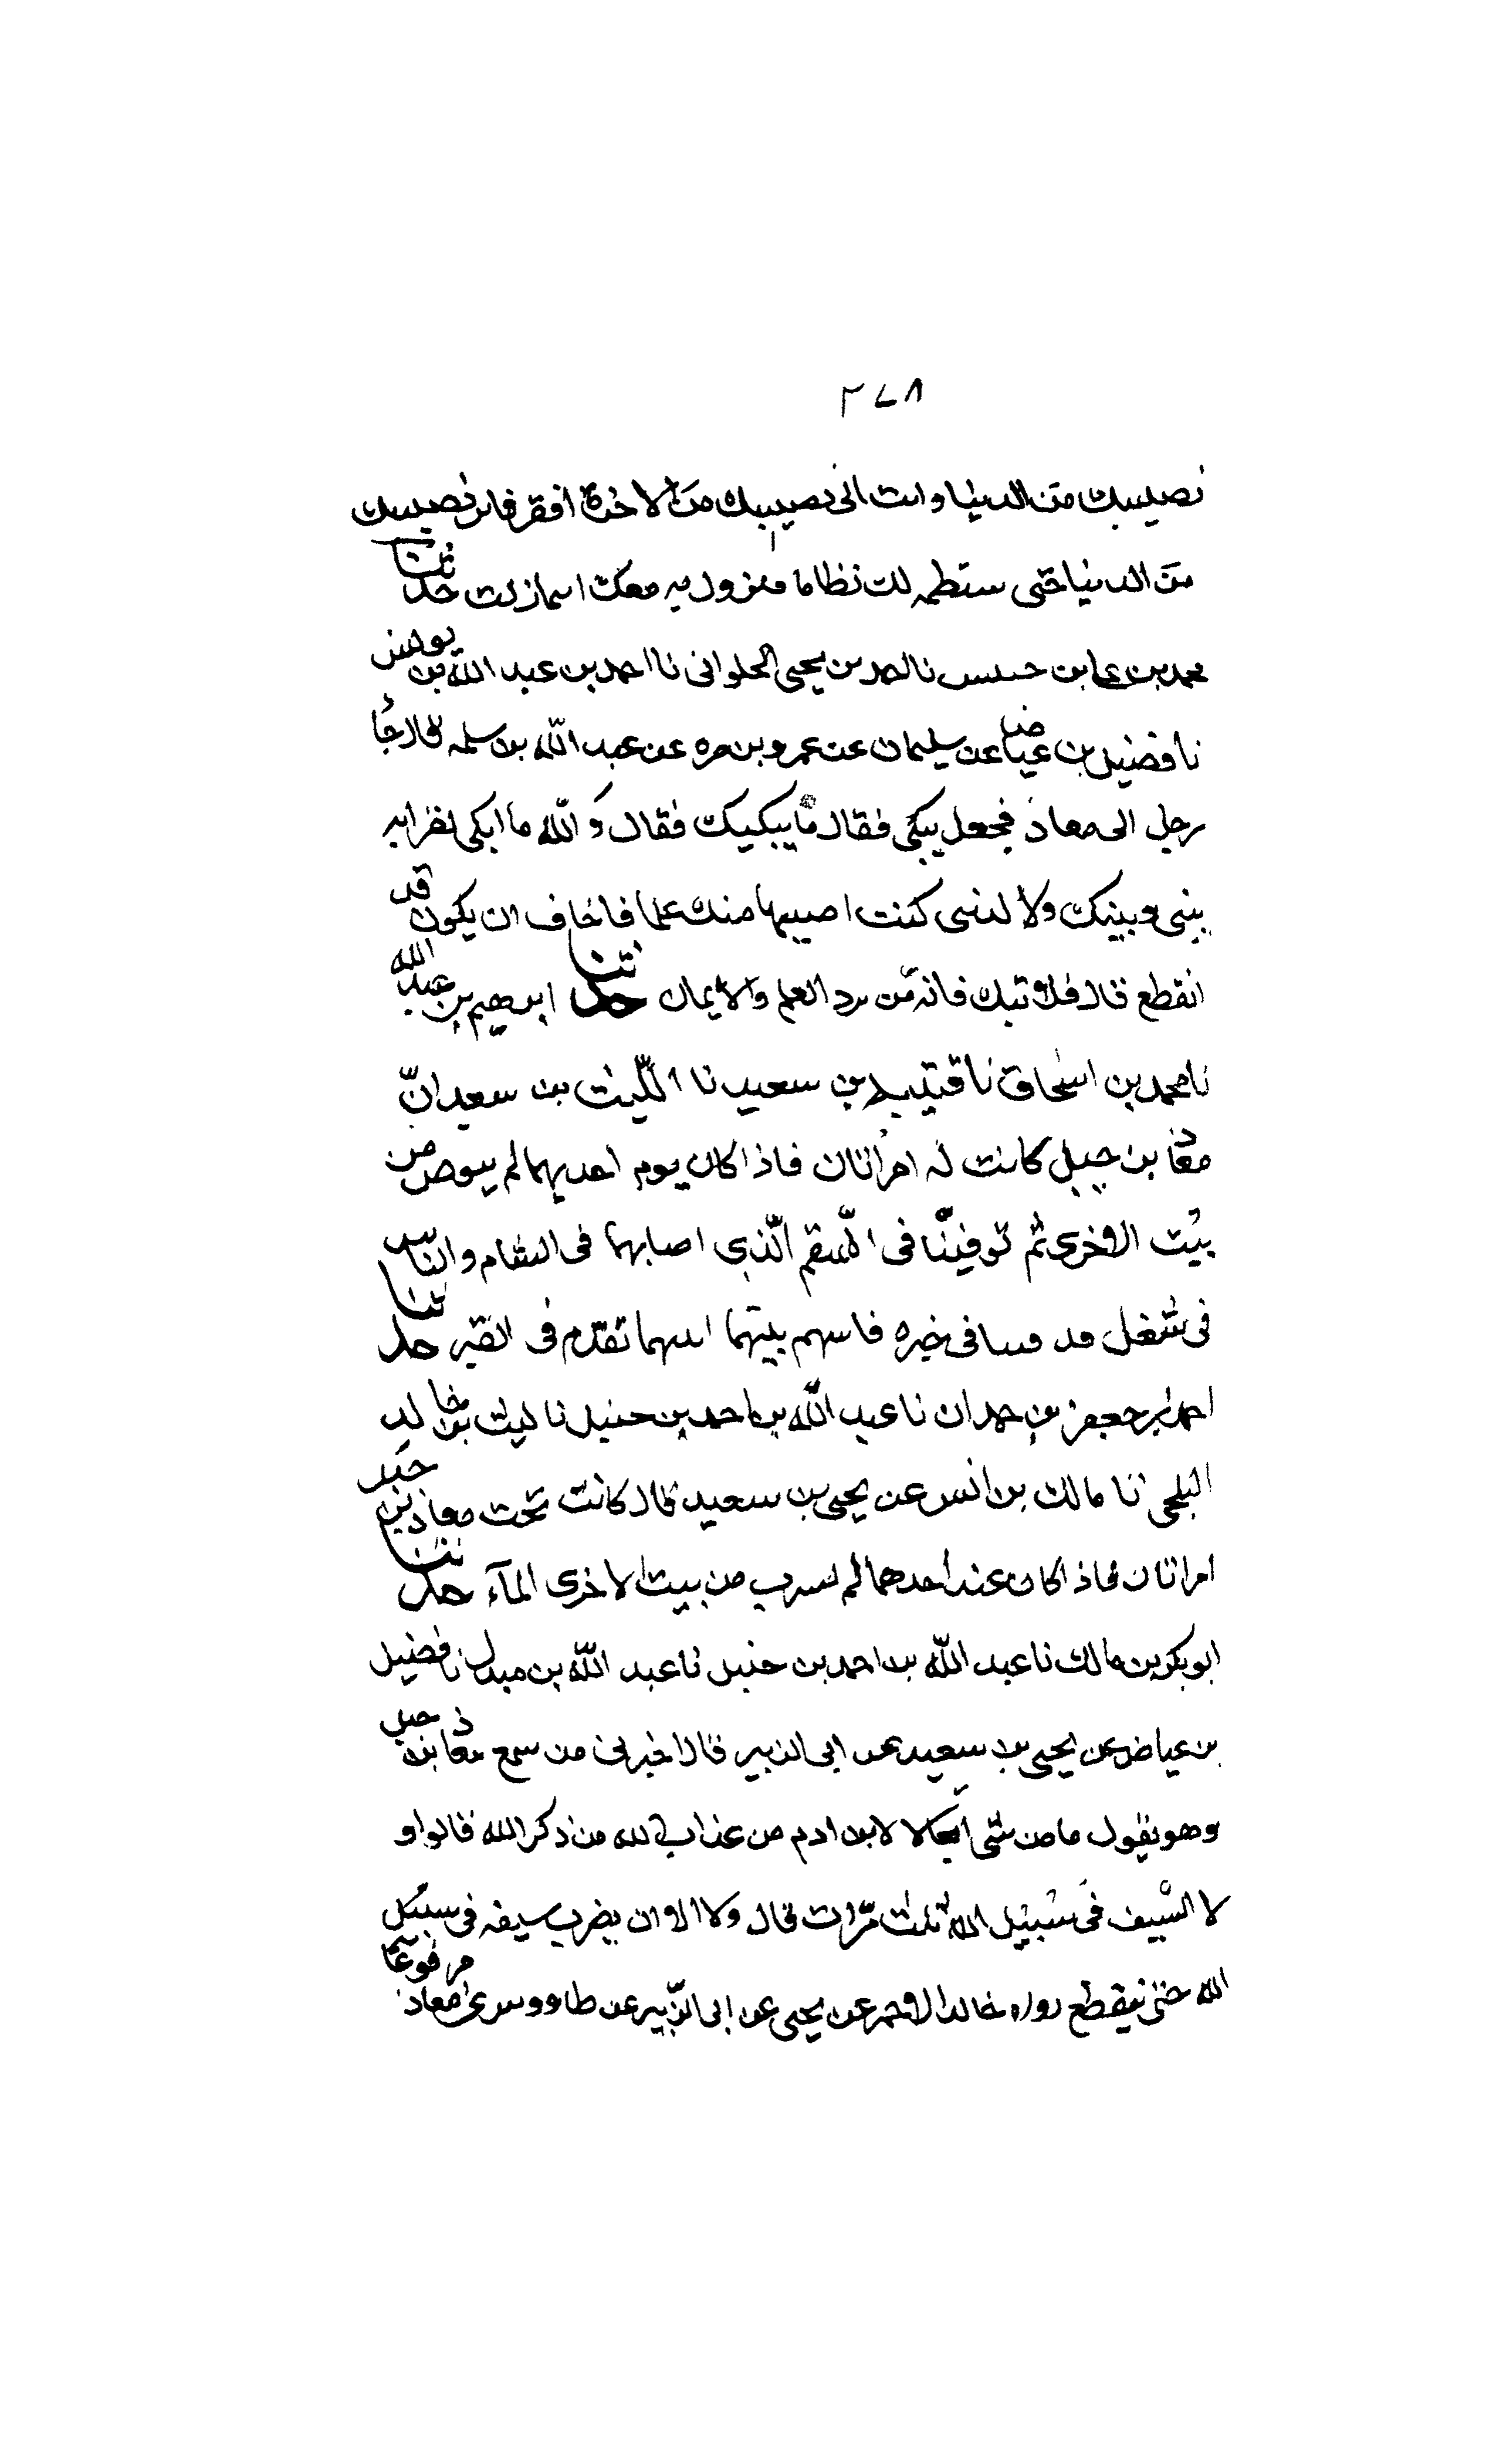 ٢٧٨
نصيبك من الدنيا وانت الى نصيبك من الاخرة افقر فاثر نصيبك
من الدنيا حتى ستطمه لك نظاما فتزول به معك اينما زلت حدثنا
محمد بن على بن حبيش نا احمد بن يحيى الحلوانى نا احمد بن عبد الله بن يونس
نا فضيل بن عياض عن سليمان عن عمرو بن مره عن عبد الله بن سلمه قال جا
رجل الى معاذ فجعل يبكى فقال ما يبكيك فقال والله ما ابكى لقرابه
بينى وبينك ولا لدنيا كنت اصيبها منك علما فاخاف ان يكون قد
انقطع قال فلا تبك فانه من يرد العلم والايمان حدثنا ابرهيم بن عبد الله
نا محمد بن اسحاق نا قتيبه بن سعيد نا الليث بن سعد ان
معاذ بن جبل كانت له امراتان فاذا كان يوم احديهما لم يتوض من
بيت الاخرى ثم توفيتا فى السقم الذى اصابهما فى الشام والناس
فى شغل فدفنتا فى حفيره فاسهم بينهما ايتهما تقدم فى القبر حدثنا
احمد بن جعفر بن حمدان نا عبد الله بن احمد بن حنبل نا ليث بن خالد
البلخى نا مالك بن انس عن يحيى بن سعيد قال كانت تحت معاذ بن جبل
امراتان فاذا كان عند احدهما لم يشرب من بيت الاخرى المآء حدثنا
ابو بكر بن مالك نا عبد الله بن احمد بن حنبل نا عبد الله بن صندل نا فضيل
بن عياض عن يحيى بن سعيد عن ابى الزبير قال اخبرنى من سمع معاذ بن جبل
وهو يقول ما من شى انجا لابن ادم من عذاب الله من ذكر الله قالوا و
لا السيف فى سبيل الله ثلث مرات قال ولا الا ان يضرب بسيفه فى سبيل
الله حتى ينقطع رواه خالد الاحمر عن يحيى عن ابى الزبير عن طاووس عن معاذ مرفوعا